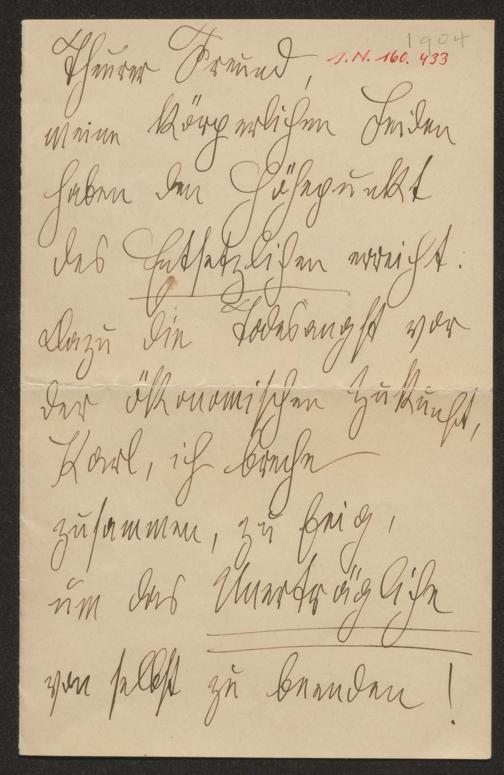 1904
Theurer Freund,
I.N. 160.433
meine körperlichen Leiden
haben den Höhepunkt
des Entsetzlichen erreicht.
Dazu die Todesangst vor
der ökonomischen Zukunft,
Karl, ich breche
zusammen, zu feig,
um das Unerträgliche
von selbst zu beenden!